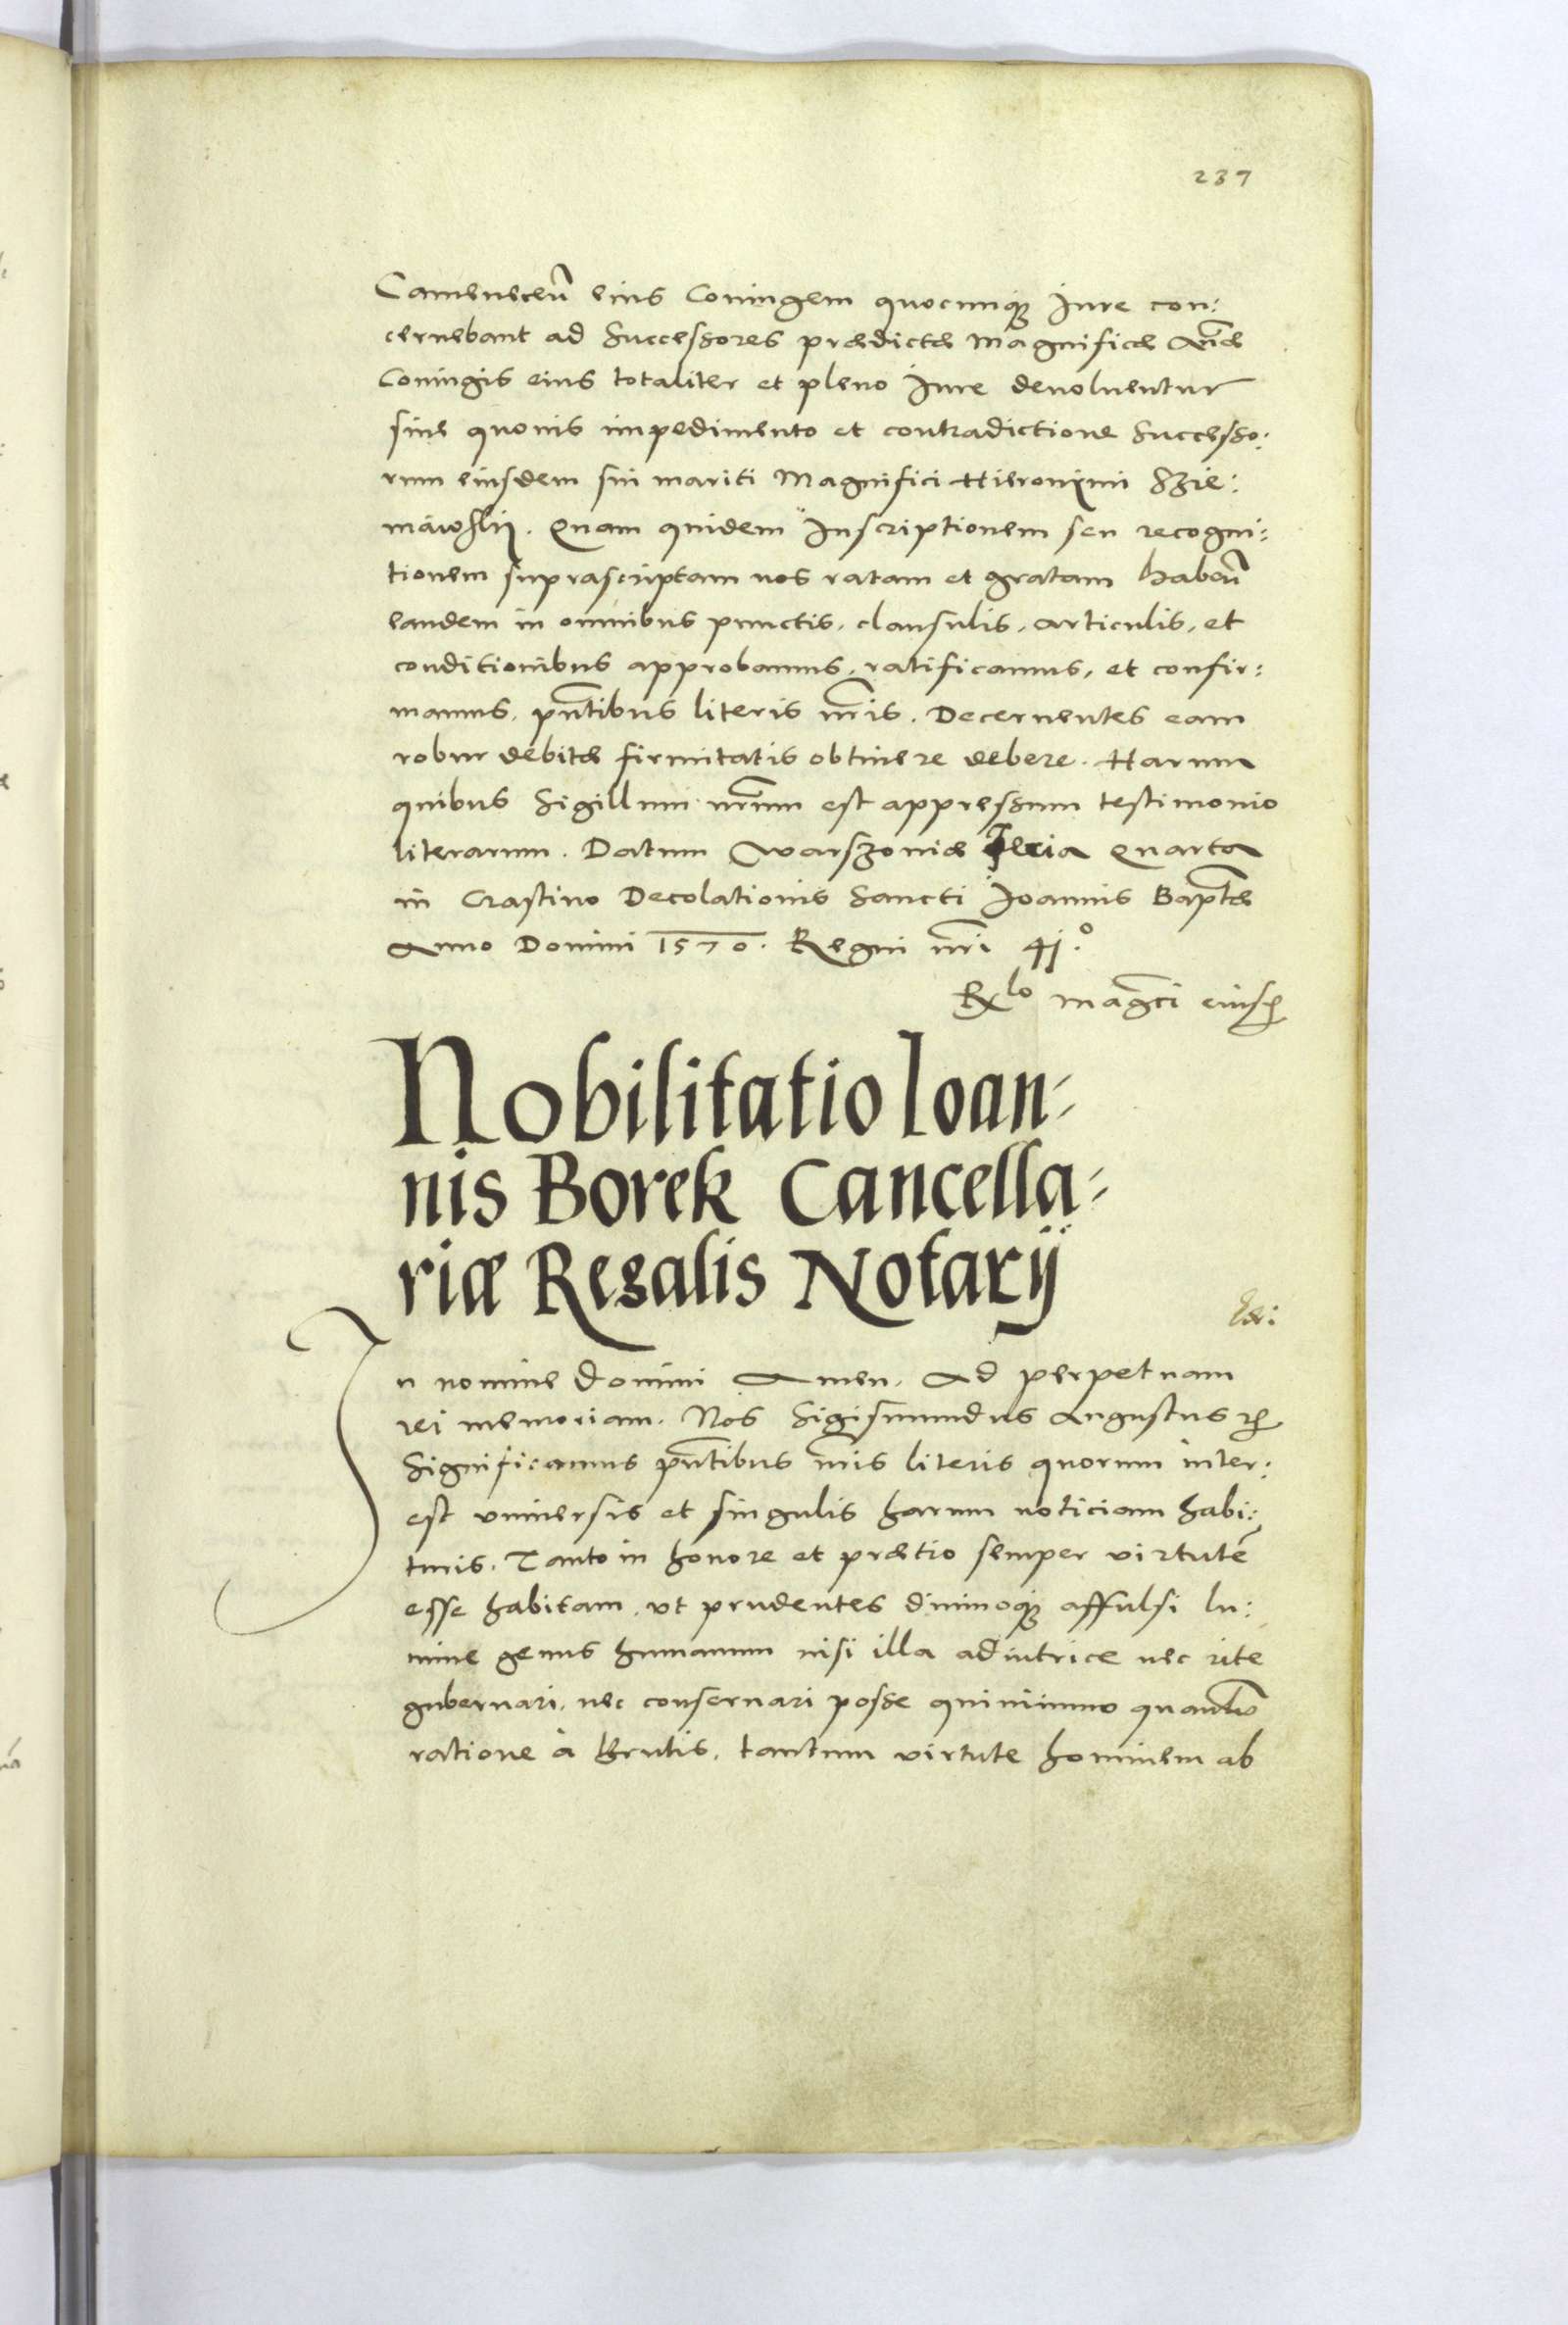 237
Camenecen̄ eius Coniugem quocunq̢ Iure con:
cernebant ad Successores prædictæ Magnificæ An̄æ
Coniugis eius totaliter et pleno Iure deuoluentur
sine quouis impedimento et contradictione Successo:
rum eiusdem sui mariti Magnifici Hieronimi Szie:
niawskij. Quam quidem Inscriptionem seu recogni:
tionem suprascriptam nos ratam et gratam haben̄
eandem in omnibus punctis, clausulis, articulis, et
conditionibus approbamus, ratificamus, et confir:
mamus, pn̄tibus literis nr̄is. Decernentes eam
robur debitæ firmitatis obtinere debere. Harum
quibus Sigillum nr̄um est appressum testimonio
literarum. Datum Warszouiæ Feria Quarta
in Crastino Decolationis Sancti Joannis Bapt̄æ
Anno Domini 1570. Regni nr̄i 41.º
Rlo maḡci eiusd
Nobilitatio Ioan-
nis Borek Cancella-
riæ Regalis Notarij
In nomine Domini Amen. Ad perpetuam
rei memoriam. Nos Sigismundus Augustus
Significamus pn̄tibus nr̄is literis quorum inter:
est vniuersis et singulis harum noticiam habi:
turis. Tanto in honore et prætio semper virtutē
esse habitam, vt prudentes diuinoq̢ affulsi lu:
mine genus humanum nisi illa adiutrice nec rite
gubernari, nec conseruari posse quinimmo quantū
ratione à Brutis, tantum virtute hominem ab